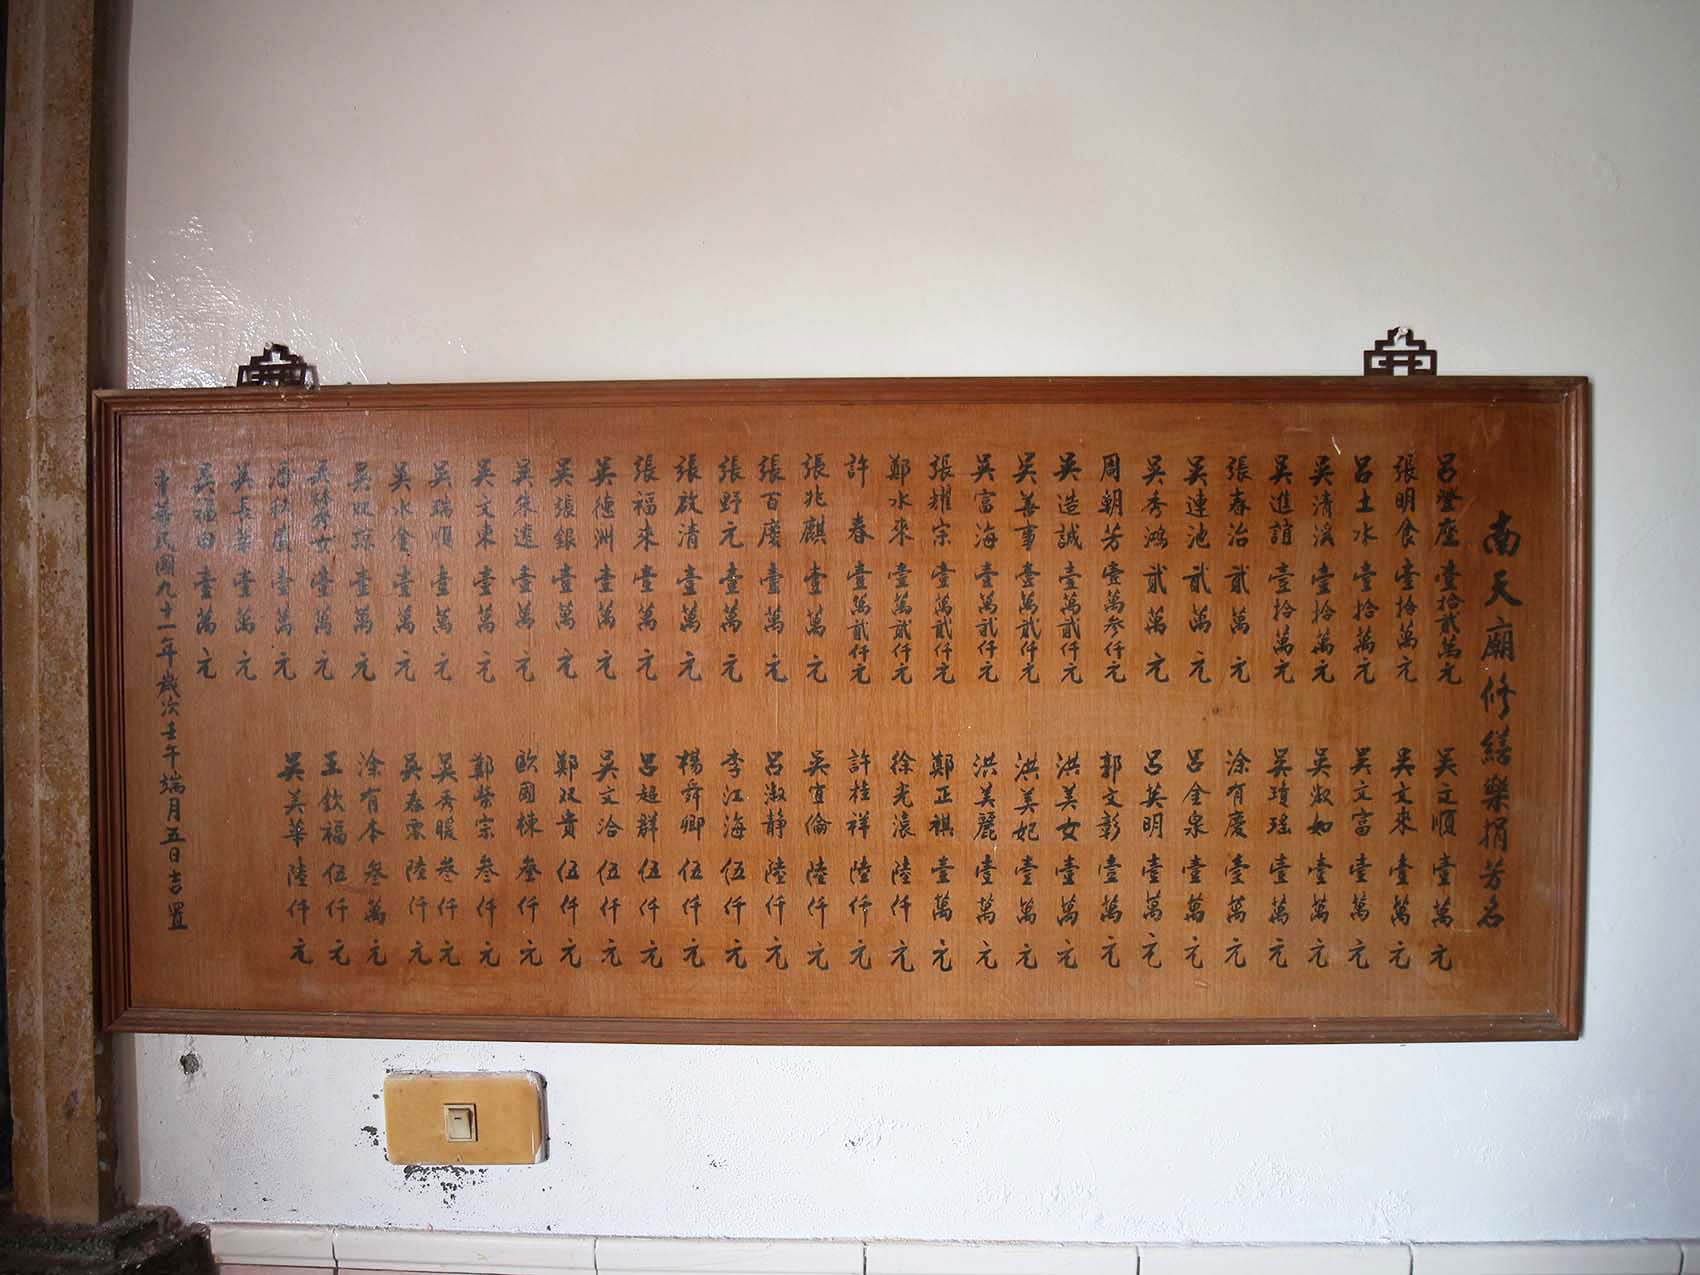 南天廟修繕樂捐芳名
呂澄座 壹拾貳萬元
張明食 壹拾萬元
呂土水 壹拾萬元
吳清溪 壹拾萬元
吳進誼 壹拾萬元
張春治 貳萬元
吳連池 貳萬元
吳秀鴻 貳萬元
周朝芳 壹萬參仟元
吳造誠 壹萬貳仟元
吳善事 壹萬貳仟元
吳富海 壹萬貳仟元
張耀宗 壹萬貳仟元
鄭水來 壹萬貳仟元
許春 壹萬貳仟元
張兆麒 壹萬元
張百慶 壹萬元
張野元 壹萬元
張啟清 壹萬元
張福來 壹萬元
吳德洲 壹萬元
吳張銀 壹萬元
吳朱遠 壹萬元
吳文東 壹萬元
吳瑞順 壹萬元
吳水金 壹萬元
吳双諒 壹萬元
壹萬元
壹萬元
吳長華 壹萬元
吳福田 壹萬元
吳文順 壹萬元
吳文來 壹萬元
吳文富 壹萬元
吳淑如 壹萬元
吳瓊瑤 壹萬元
涂有慶 壹萬元
呂金泉 壹萬元
呂英明 壹萬元
郭文彰 壹萬元
洪美女 壹萬元
洪美妃 壹萬元
洪美麗 壹萬元
鄭正祺 壹萬元
徐光遠 陸仟元
許桂祥 陸仟元
吳宜倫 陸仟元
呂淑靜 陸仟元
李江海 伍仟元
楊舜卿 伍仟元
呂超群 伍仟元
吳文洽 伍仟元
鄭双貴 伍仟元
歐國棟 叁仟元
鄭榮宗 叁仟元
吳秀暖 叁仟元
吳春東 陸仟元
涂有本 叁萬元
王欽福 伍仟元
吳美華 陸仟元
中華民國九十一年歲次壬午端月五日吉置